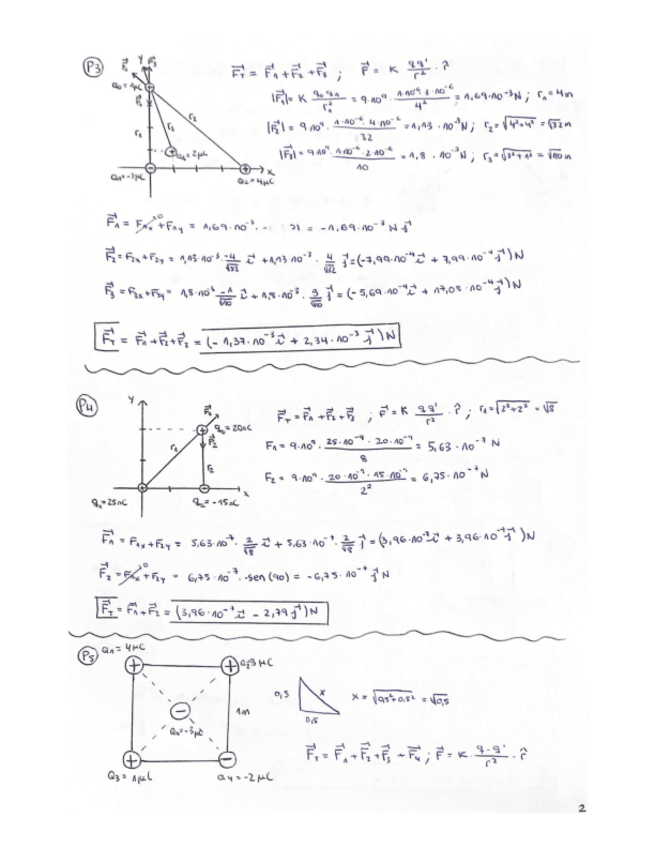 P3
Y
F⃗₂ F⃗₃
F⃗_T = F⃗₁ + F⃗₂ + F⃗₃ ; F⃗ = K qq'/r² · r̂
|F⃗₁| = K q₀q₁/r₁² = 9·10⁹ · 1·10⁻⁶·3·10⁻⁶/4² = 1,69·10⁻³ N ; r₁ = 4m
|F⃗₂| = 9·10⁹ · 1·10⁻⁶·4·10⁻⁶/32 = 1,13·10⁻³ N ; r₂ = √4²+4² = √32 m
|F⃗₃| = 9·10⁹ · 1·10⁻⁶·2·10⁻⁶/10 = 1,8·10⁻³ N ; r₃ = √3²+1² = √10 m
r₁ r₃ r₂
2μC
X
Q₁=-3μC Q₂=4μC
F⃗₁ = F₁ₓ⁰ + F₁y = 1,69·10⁻³ · = -1,69·10⁻³ N j⃗
F⃗₂ = F₂ₓ + F₂y = 1,13·10⁻³ · -4/√32 i⃗ + 1,13·10⁻³ · 4/√32 j⃗ = (-7,99·10⁻⁴ i⃗ + 7,99·10⁻⁴ j⃗) N
F⃗₃ = F₃ₓ + F₃y = 1,8·10⁻³ · -1/√10 i⃗ + 1,8·10⁻³ · 3/√10 j⃗ = (-5,69·10⁻⁴ i⃗ + 17,08·10⁻⁴ j⃗) N
F⃗_T = F⃗₁ + F⃗₂ + F⃗₃ = (-1,37·10⁻³ i⃗ + 2,34·10⁻³ j⃗) N
P4
Y
F⃗₁
q₀=20nC
F⃗₂
r₁ r₂
X
q₁=25nC q₂=-15nC
F⃗_T = F⃗₁ + F⃗₂ + F⃗₃ ; F⃗ = K qq'/r² · r̂ ; r₁ = √2²+2² = √8
F₁ = 9·10⁹ · 25·10⁻⁹ · 20·10⁻⁹/8 = 5,63·10⁻⁷ N
F₂ = 9·10⁹ · 20·10⁻⁹ · 15·10⁻⁹/2² = 6,75·10⁻⁷ N
F⃗₁ = F₁ₓ + F₁y = 5,63·10⁻⁷ · 2/√8 i⃗ + 5,63·10⁻⁷ · 2/√8 j⃗ = (3,96·10⁻⁷ i⃗ + 3,96·10⁻⁷ j⃗) N
F⃗₂ = F₂ₓ⁰ + F₂y = 6,75·10⁻⁷ · sen(90) = -6,75·10⁻⁷ j⃗ N
F⃗_T = F⃗₁ + F⃗₂ = (3,96·10⁻⁷ i⃗ - 2,79 j⃗) N
P5
Q₁=4μC
3μC
1m
Q₀=-3μC
Q₃=1μC Q₄=-2μC
0,5 x
0,5
x = √0,5²+0,5² = √0,5
F⃗_T = F⃗₁ + F⃗₂ + F⃗₃ + F⃗₄ ; F⃗ = K · q·q'/r² · r̂
2